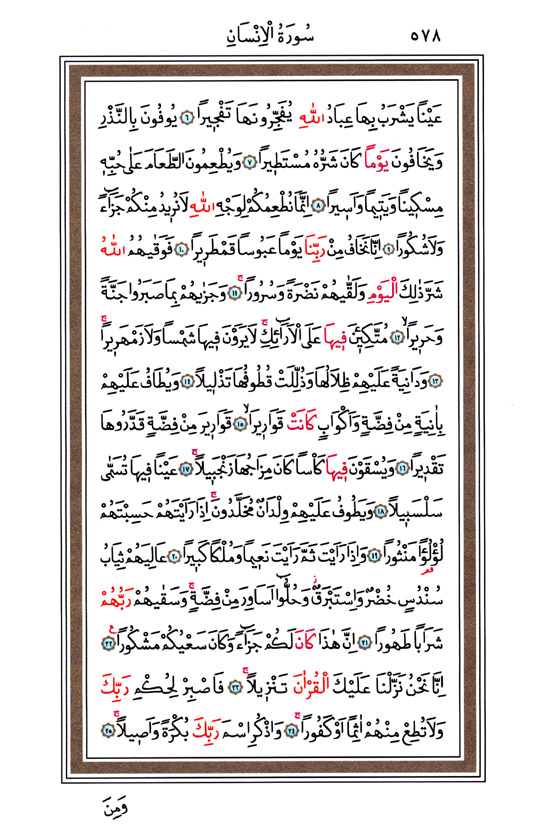 سُورَةُ الْاِنْسَانِ ٥٧٨
عَيْنًا يَشْرَبُ بِهَا عِبَادُ اللّٰهِ يُفَجِّرُونَهَا تَفْج۪يرًا ﴿٦﴾ يُوفُونَ بِالنَّذْرِ
وَيَخَافُونَ يَوْمًا كَانَ شَرُّهُ مُسْتَط۪يرًا ﴿٧﴾ وَيُطْعِمُونَ الطَّعَامَ عَلٰى حُبِّه۪
مِسْك۪ينًا وَيَت۪يمًا وَاَس۪يرًا ﴿٨﴾ اِنَّمَا نُطْعِمُكُمْ لِوَجْهِ اللّٰهِ لَا نُر۪يدُ مِنْكُمْ جَزَٓاءً
وَلَا شُكُورًا ﴿٩﴾ اِنَّا نَخَافُ مِنْ رَبِّنَا يَوْمًا عَبُوسًا قَمْطَر۪يرًا ﴿١٠﴾ فَوَقٰيهُمُ اللّٰهُ
شَرَّ ذٰلِكَ الْيَوْمِ وَلَقّٰيهُمْ نَضْرَةً وَسُرُورًاۚ ﴿١١﴾ وَجَزٰيهُمْ بِمَا صَبَرُوا جَنَّةً
وَحَر۪يرًاۙ ﴿١٢﴾ مُتَّكِـ۪ٔينَ ف۪يهَا عَلَى الْاَرَٓائِكِۚ لَا يَرَوْنَ ف۪يهَا شَمْسًا وَلَا زَمْهَر۪يرًاۚ
﴿١٣﴾ وَدَانِيَةً عَلَيْهِمْ ظِلَالُهَا وَذُلِّلَتْ قُطُوفُهَا تَذْل۪يلًا ﴿١٤﴾ وَيُطَافُ عَلَيْهِمْ
بِاٰنِيَةٍ مِنْ فِضَّةٍ وَاَكْوَابٍ كَانَتْ قَوَار۪يرَاۙ ﴿١٥﴾ قَوَار۪يرَ مِنْ فِضَّةٍ قَدَّرُوهَا
تَقْد۪يرًا ﴿١٦﴾ وَيُسْقَوْنَ ف۪يهَا كَأْسًا كَانَ مِزَاجُهَا زَنْجَب۪يلًاۚ ﴿١٧﴾ عَيْنًا ف۪يهَا تُسَمّٰى
سَلْسَب۪يلًا ﴿١٨﴾ وَيَطُوفُ عَلَيْهِمْ وِلْدَانٌ مُخَلَّدُونَۚ اِذَا رَاَيْتَهُمْ حَسِبْتَهُمْ
لُؤْلُؤًا مَنْثُورًا ﴿١٩﴾ وَاِذَا رَاَيْتَ ثَمَّ رَاَيْتَ نَع۪يمًا وَمُلْكًا كَب۪يرًا ﴿٢٠﴾ عَالِيَهُمْ ثِيَابُ
سُنْدُسٍ خُضْرٌ وَاِسْتَبْرَقٌۘ وَحُلُّٓوا اَسَاوِرَ مِنْ فِضَّةٍۚ وَسَقٰيهُمْ رَبُّهُمْ
شَرَابًا طَهُورًا ﴿٢١﴾ اِنَّ هٰذَا كَانَ لَكُمْ جَزَٓاءً وَكَانَ سَعْيُكُمْ مَشْكُورًا ﴿٢٢﴾
اِنَّا نَحْنُ نَزَّلْنَا عَلَيْكَ الْقُرْاٰنَ تَنْز۪يلًاۚ ﴿٢٣﴾ فَاصْبِرْ لِحُكْمِ رَبِّكَ
وَلَا تُطِعْ مِنْهُمْ اٰثِمًا اَوْ كَفُورًاۚ ﴿٢٤﴾ وَاذْكُرِ اسْمَ رَبِّكَ بُكْرَةً وَاَص۪يلًاۚ ﴿٢٥﴾
وَمِنَ